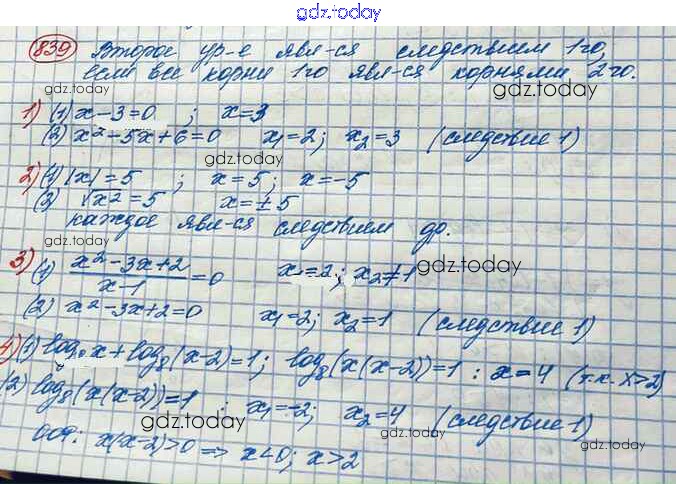 gdz.today
839 Второе ур-е явл-ся следствием 1го,
если все корни 1го явл-ся корнями 2го.
gdz.today gdz.today
1) (1) x-3=0 ; x=3
(2) x²-5x+6=0 x₁=2; x₂=3 (следствие 1)
gdz.today
2) (1) |x|=5 ; x=5; x=-5
(2) √x²=5 x=±5
каждое явл-ся следствием др.
gdz.today gdz.today
3) (1) (x²-3x+2)/(x-1)=0 x=2; x₂≠1
gdz.today
(2) x²-3x+2=0 x₁=2; x₂=1 (следствие 1)
4) (1) log₈x+log₈(x-2)=1; log₈(x(x-2))=1 : x=4 (т.к. x>2)
gdz.today
(2) log₈(x(x-2))=1 ; x₁=-2; x₂=4 (следствие 1)
gdz.today
ООФ: x(x-2)>0 => x<0; x>2
gdz.today